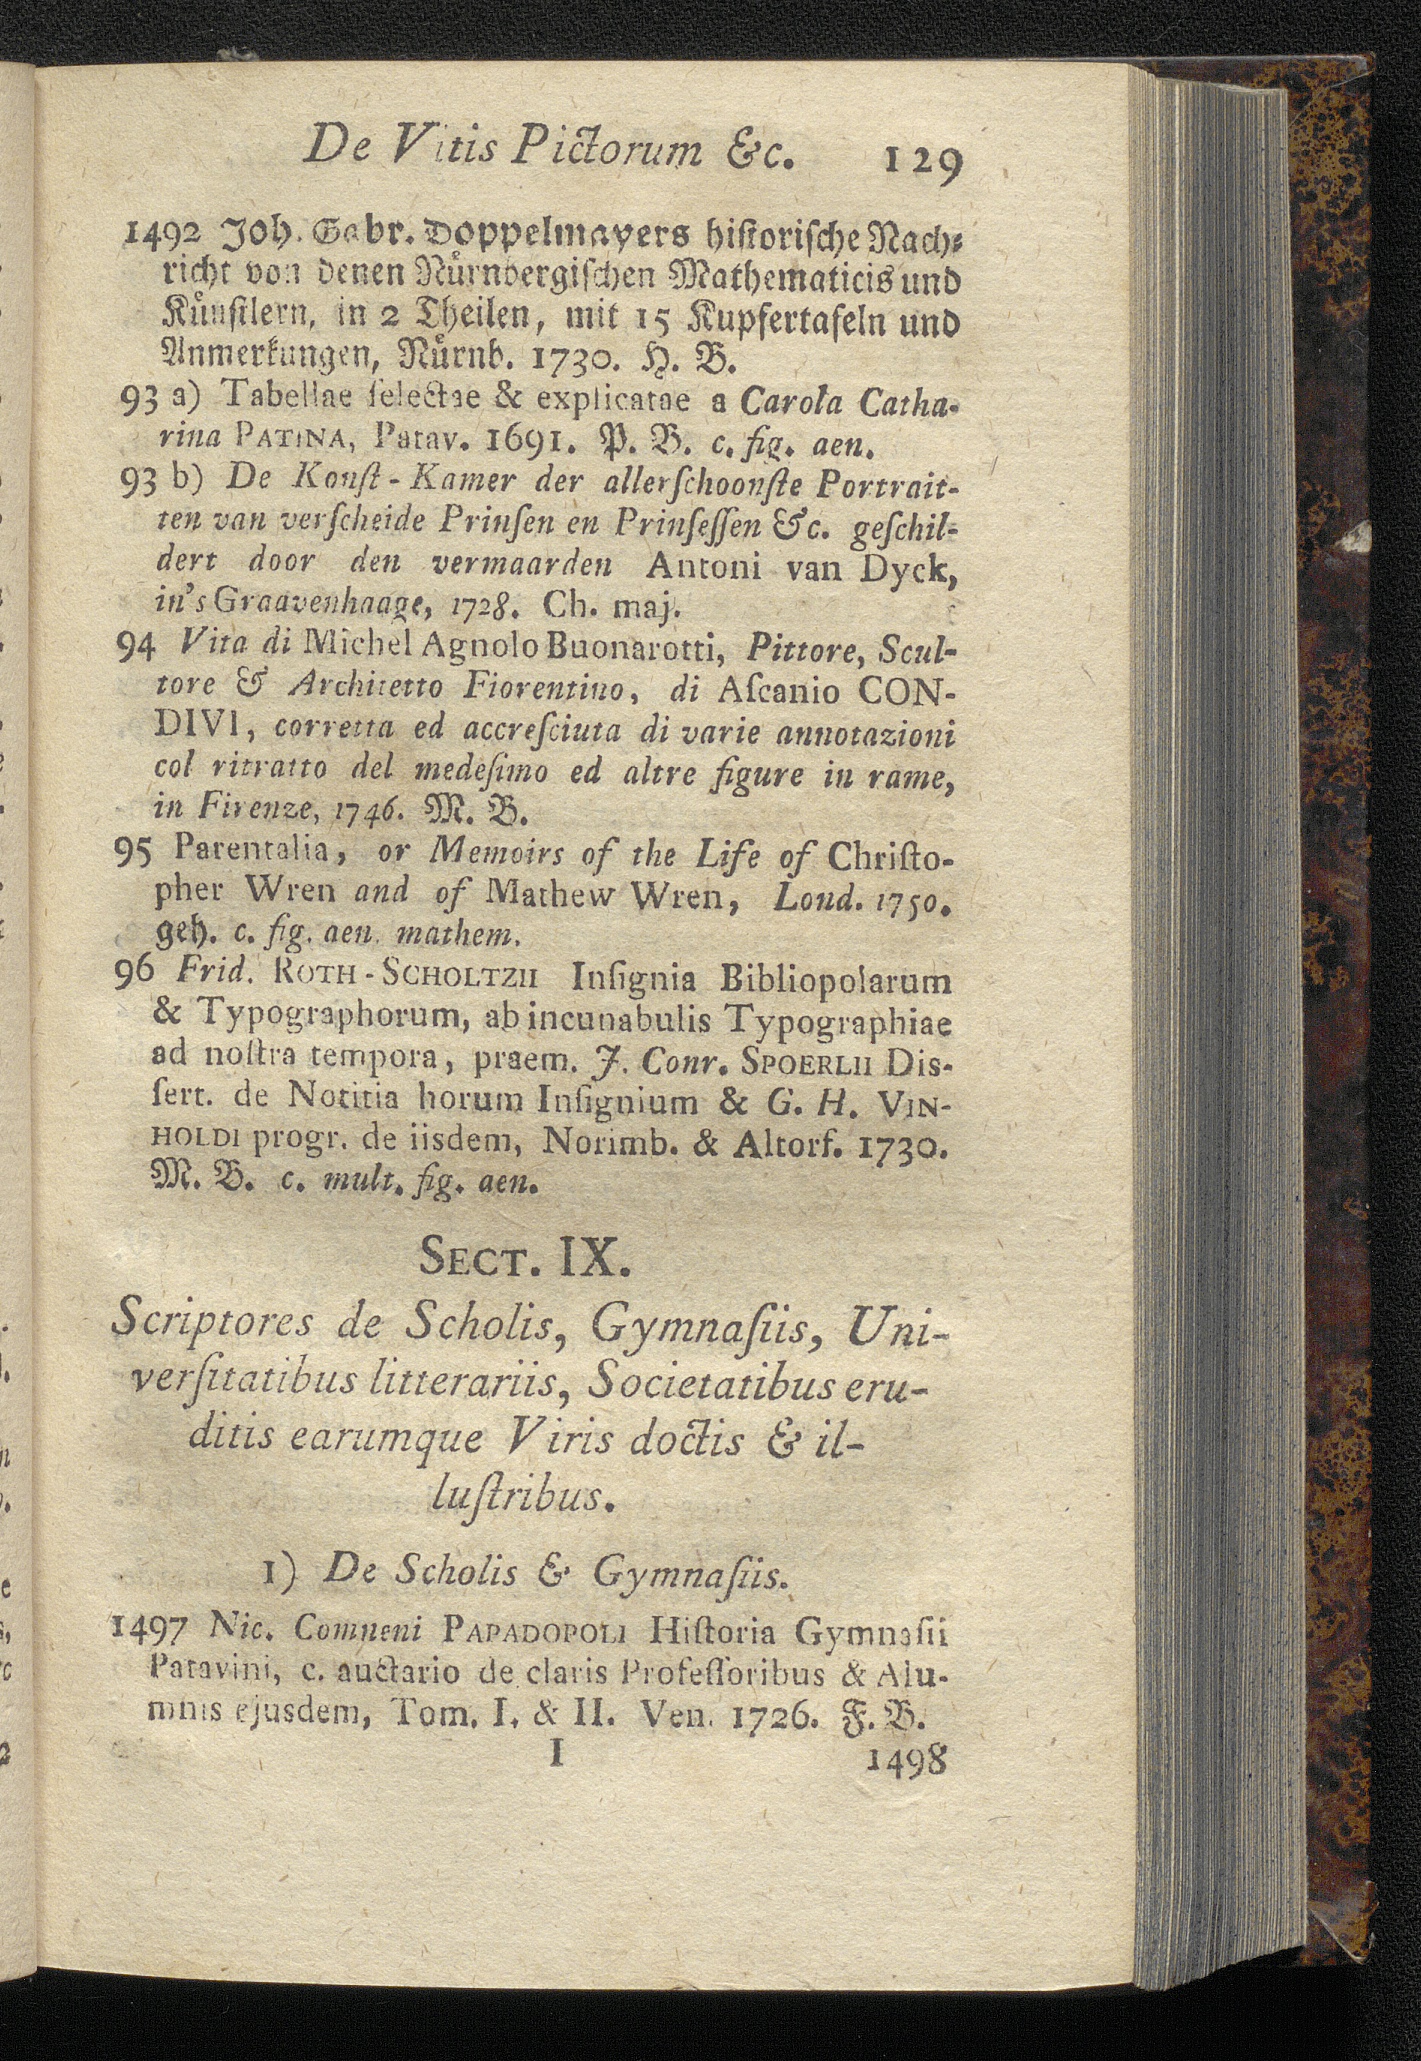 De Vitis Pictorum &c. 129
1492 Joh. Gabr. Doppelmayers hiſtoriſche Nach-
richt von denen Nürnbergiſchen Mathematicis und
Künſtlern, in 2 Theilen, mit 15 Kupfertafeln und
Anmerkungen, Nürnb. 1730. H. B.
93 a) Tabellae ſelectae & explicatae a Carola Catha-
rina PATINA, Patav. 1691. P. B. c. fig. aen.
93 b) De Konſt-Kamer der allerſchoonſte Portrait-
ten van verſcheide Prinſen en Prinſeſſen &c. geſchil-
dert door den vermaarden Antoni van Dyck,
in's Graavenhaage, 1728. Ch. maj.
94 Vita di Michel Agnolo Buonarotti, Pittore, Scul-
tore & Architetto Fiorentino, di Aſcanio CON-
DIVI, corretta ed accreſciuta di varie annotazioni
col ritratto del medeſimo ed altre figure in rame,
in Firenze, 1746. M. B.
95 Parentalia, or Memoirs of the Life of Chriſto-
pher Wren and of Mathew Wren, Lond. 1750.
geh. c. fig. aen. mathem.
96 Frid. ROTH-SCHOLTZII Inſignia Bibliopolarum
& Typographorum, ab incunabulis Typographiae
ad noſtra tempora, praem. J. Conr. SPOERLII Dis-
ſert. de Notitia horum Inſignium & G. H. VIN-
HOLDI progr. de iisdem, Norimb. & Altorf. 1730.
M. B. c. mult. fig. aen.
SECT. IX.
Scriptores de Scholis, Gymnaſiis, Uni-
verſitatibus litterariis, Societatibus eru-
ditis earumque Viris doctis & il-
luſtribus.
1) De Scholis & Gymnaſiis.
1497 Nic. Comneni PAPADOPOLI Hiſtoria Gymnaſii
Patavini, c. auctario de claris Profeſſoribus & Alu-
mnis ejusdem, Tom. I. & II. Ven. 1726. F. B.
I 1498